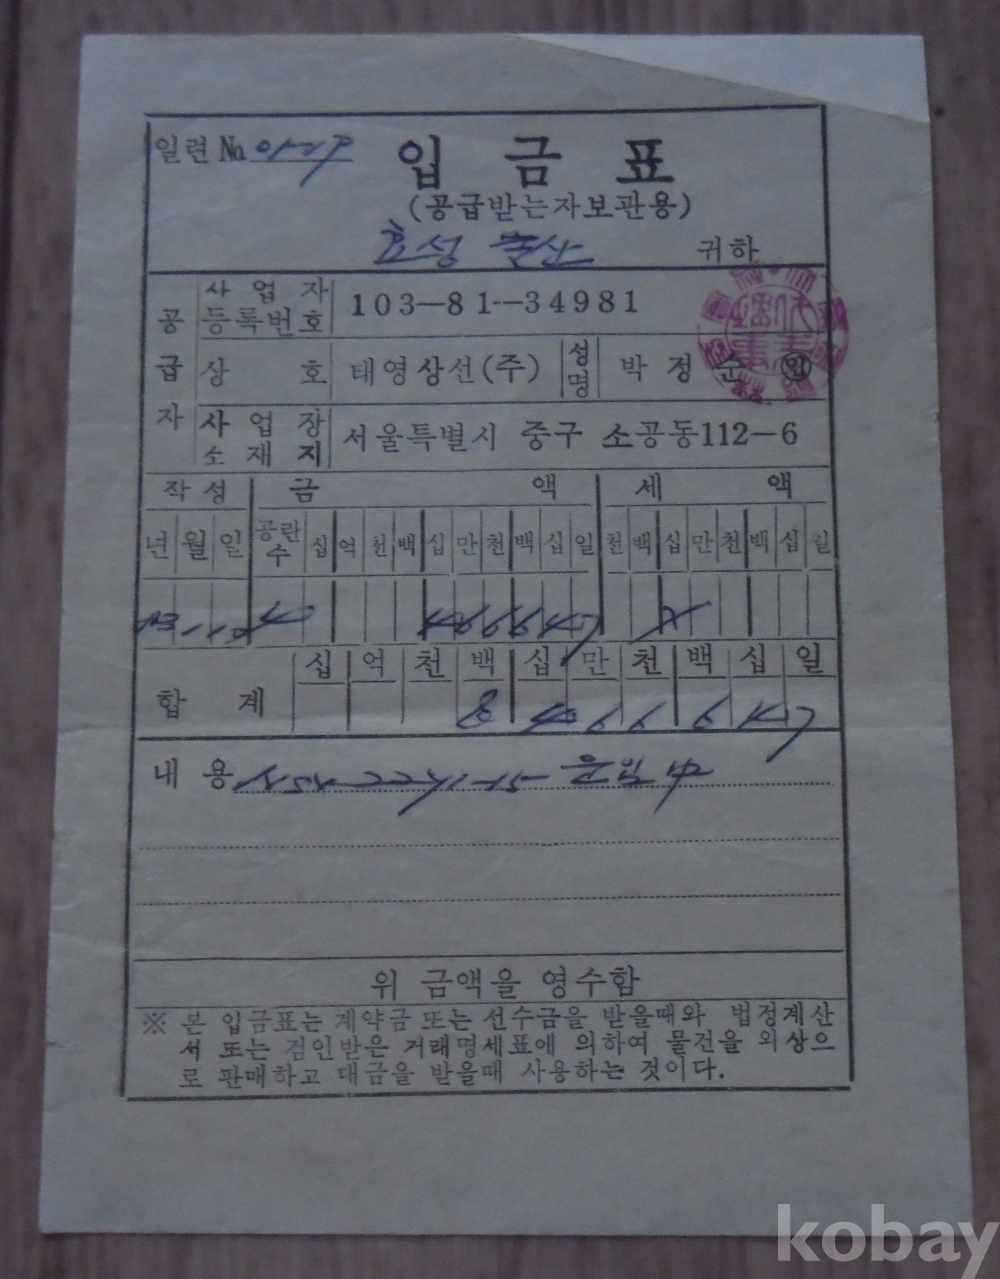 일련 №
입 금 표
(공급받는자보관용)
효성 물산 귀하
공급자
사업자등록번호 103-81-34981
상호 태영상선(주) 성명 박정순 ㊞
사업장소재지 서울특별시 중구 소공동112-6
작성 금 액 세 액
년 월 일 공란수 십 억 천 백 십 만 천 백 십 일 천 백 십 만 천 백 십 일
십 억 천 백 십 만 천 백 십 일
합 계
내 용
위 금액을 영수함
※ 본 입금표는 계약금 또는 선수금을 받을때와 법정계산
서 또는 검인받은 거래명세표에 의하여 물건을 외상으
로 판매하고 대금을 받을때 사용하는 것이다.
kobay